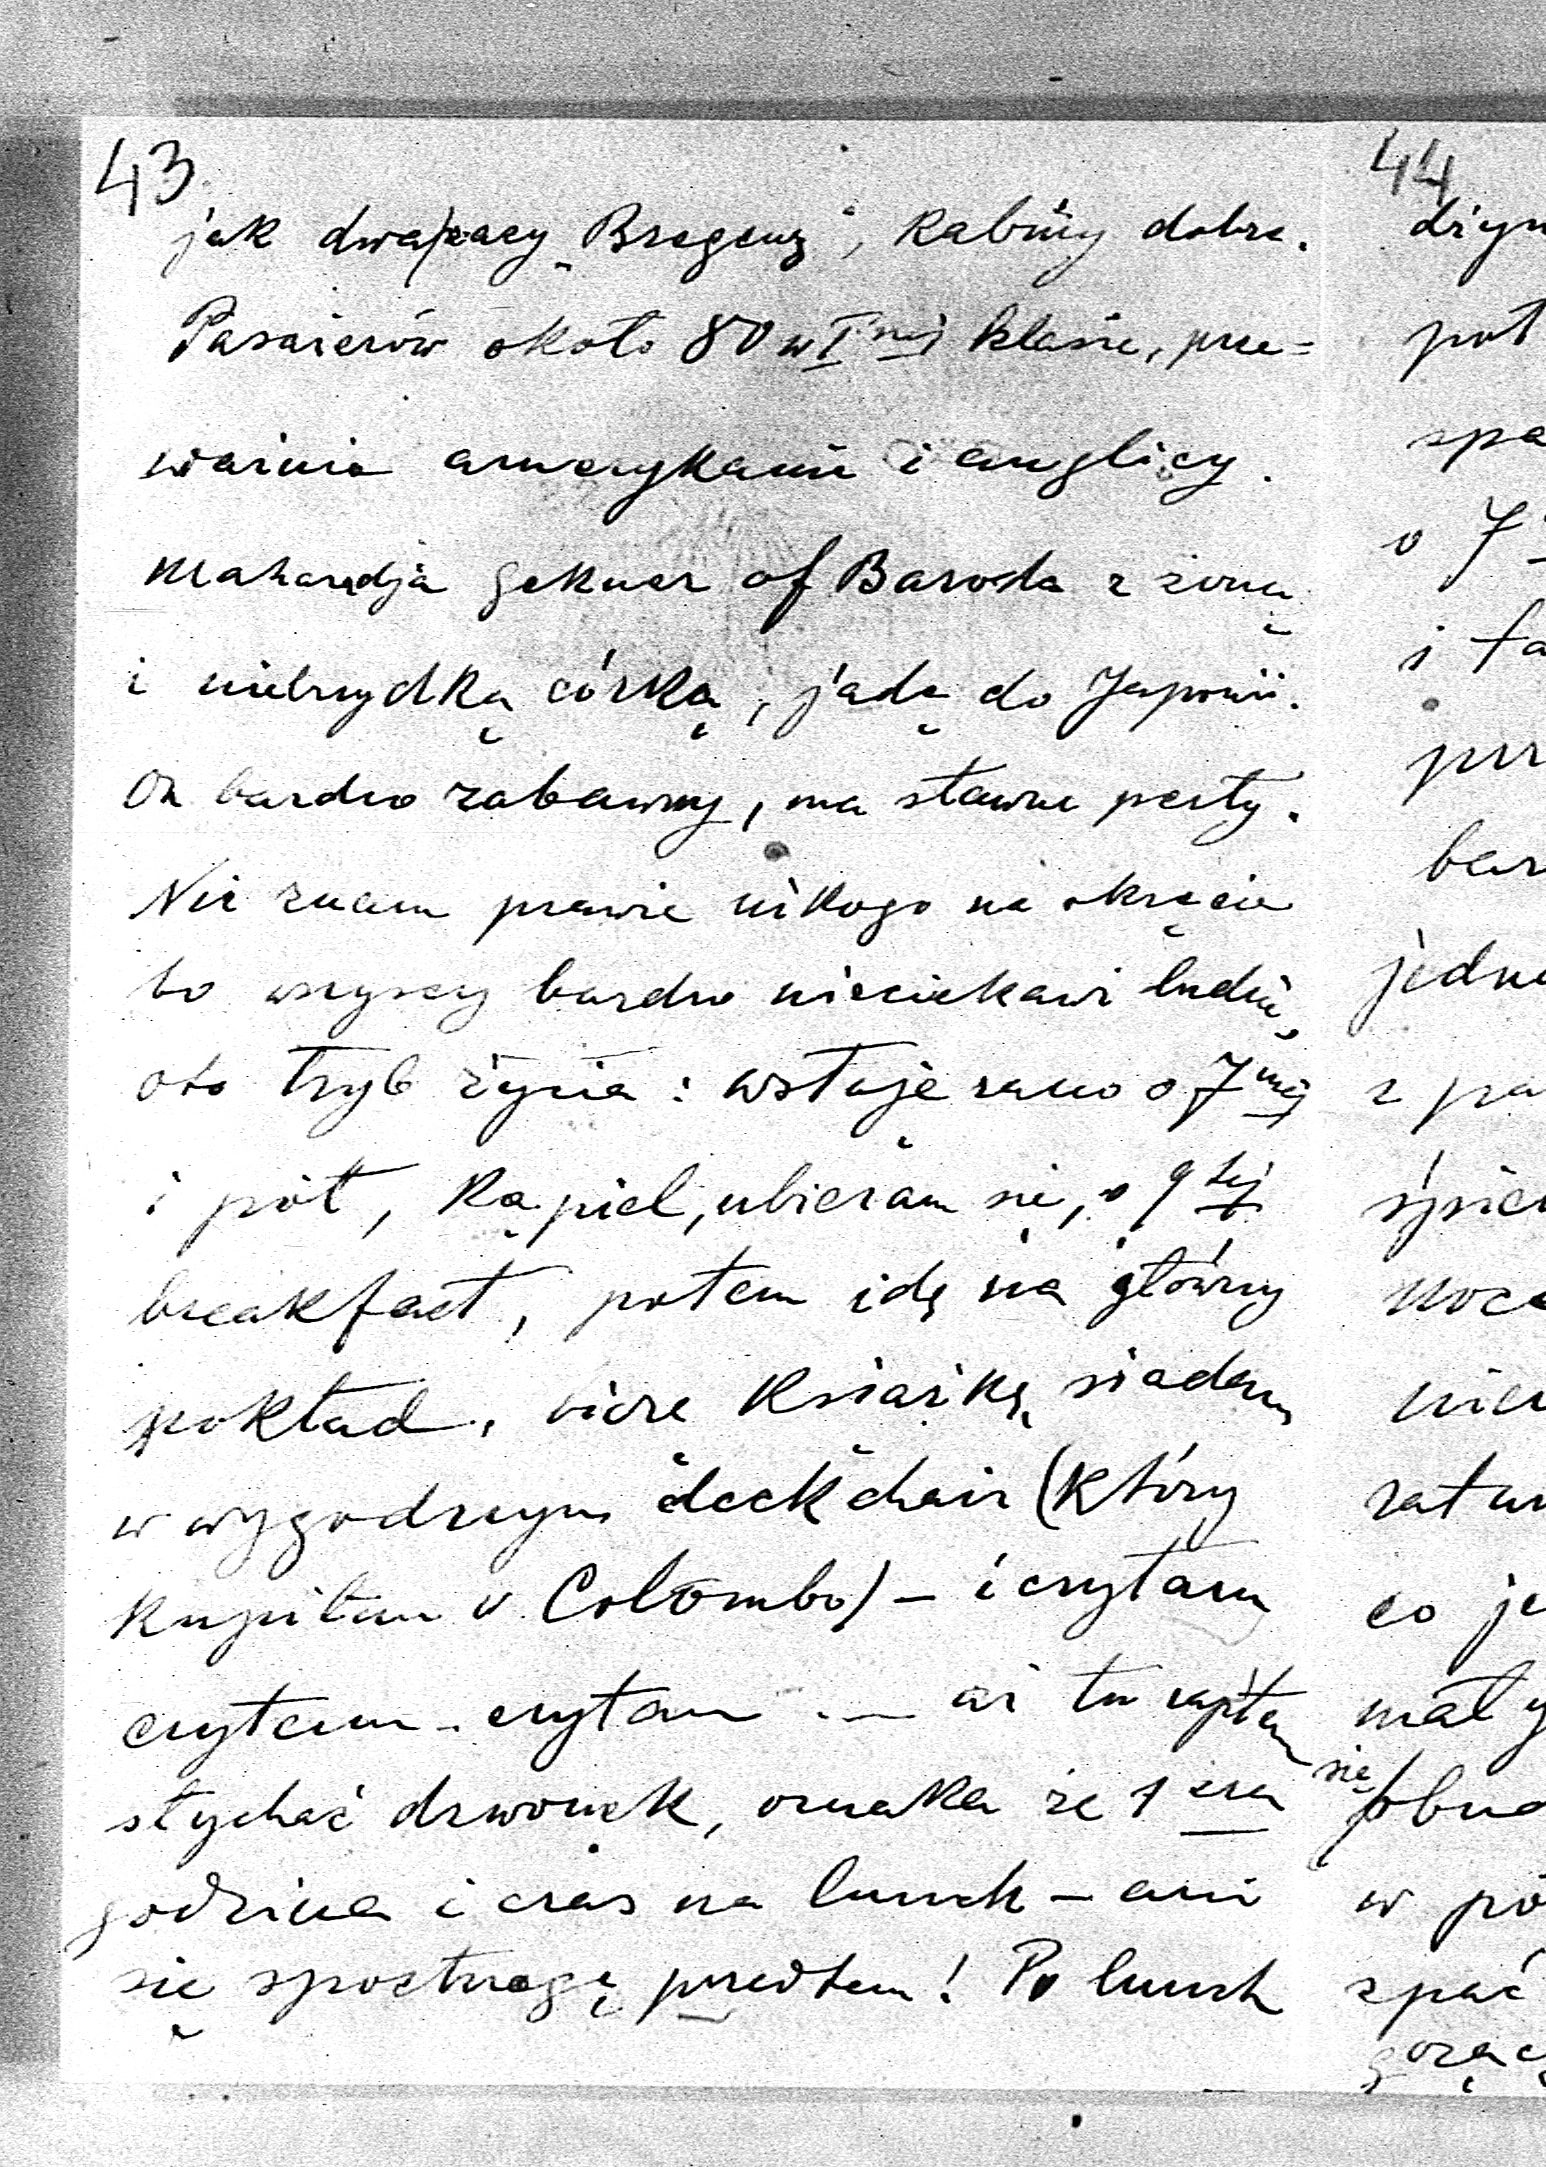 43
jak dwa razy „Bregenz", kabiny dobre.
Pasażerów około 80 w I nej klasie, prze=
ważnie amerykanie i anglicy.
Maharadja Gekwer of Baroda z żoną
i niebrzydką córką, jadą do Japonii.
On bardzo zabawny, ma sławne perły.
Nie znam prawie nikogo na okręcie
bo wszyscy bardzo nieciekawi ludzie,
oto tryb życia: wstaję rano o 7mej
i pół, kąpiel, ubieram się, o 9tej
breakfast, potem idę na główny
pokład, biorę książkę, siadam
w wygodnym deckchair (który
kupiłam v Colombo) – i czytam
czytam – czytam . — aż tu nagle
słychać dzwonek, oznaka że 1 sza
godzina i czas na lunch – ani
się spostrzegę przedtem! Po lunch
44
drzym
poł
spa
o 7
i ta
prz
bar
jedne
z pa
śpiew
noce
nie
ratun
co je
mały
się obud
w pó
spać
gorąc